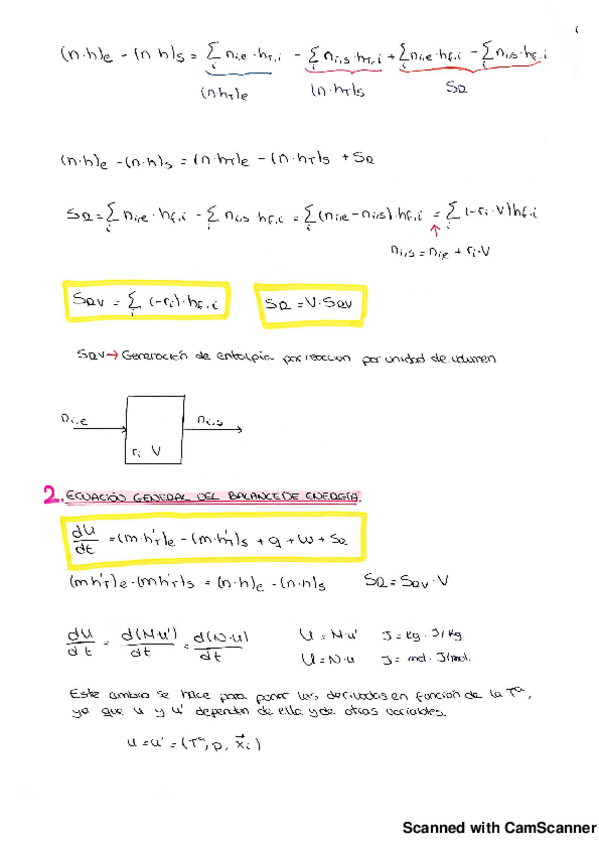 (n·h)e - (n·h)s = Σi ni,e·hT,i - Σi ni,s·hT,i + Σi ni,e·hf,i - Σi ni,s·hf,i
(n·hT)e (n·hT)s SQ
(n·h)e - (n·h)s = (n·hT)e - (n·hT)s + SQ
SQ = Σi ni,e·hf,i - Σi ni,s·hf,i = Σi (ni,e - ni,s)·hf,i = Σi (-ri·V)hf,i
ni,s = ni,e + ri·V
SQV = Σi (-ri)·hf,i SQ = V·SQV
SQV → Generación de entalpia por reaccion por unidad de volumen
ni,e ni,s
ri V
2. ECUACIÓN GENERAL DEL BALANCE DE ENERGÍA.
dU/dt = (m·h'T)e - (m·h'T)s + q + W + SQ
(m h'T)e - (m h'T)s = (n·h)e - (n·h)s SQ = SQV·V
dU/dt = d(M·u')/dt = d(N·u)/dt U = M·u' J = kg·J/kg
U = N·u J = mol·J/mol.
Este cambio se hace para poner las derivadas en función de la Tª,
ya que u y u' dependen de ella y de otras variables.
u = u' = (Tª, p, x⃗i)
Scanned with CamScanner